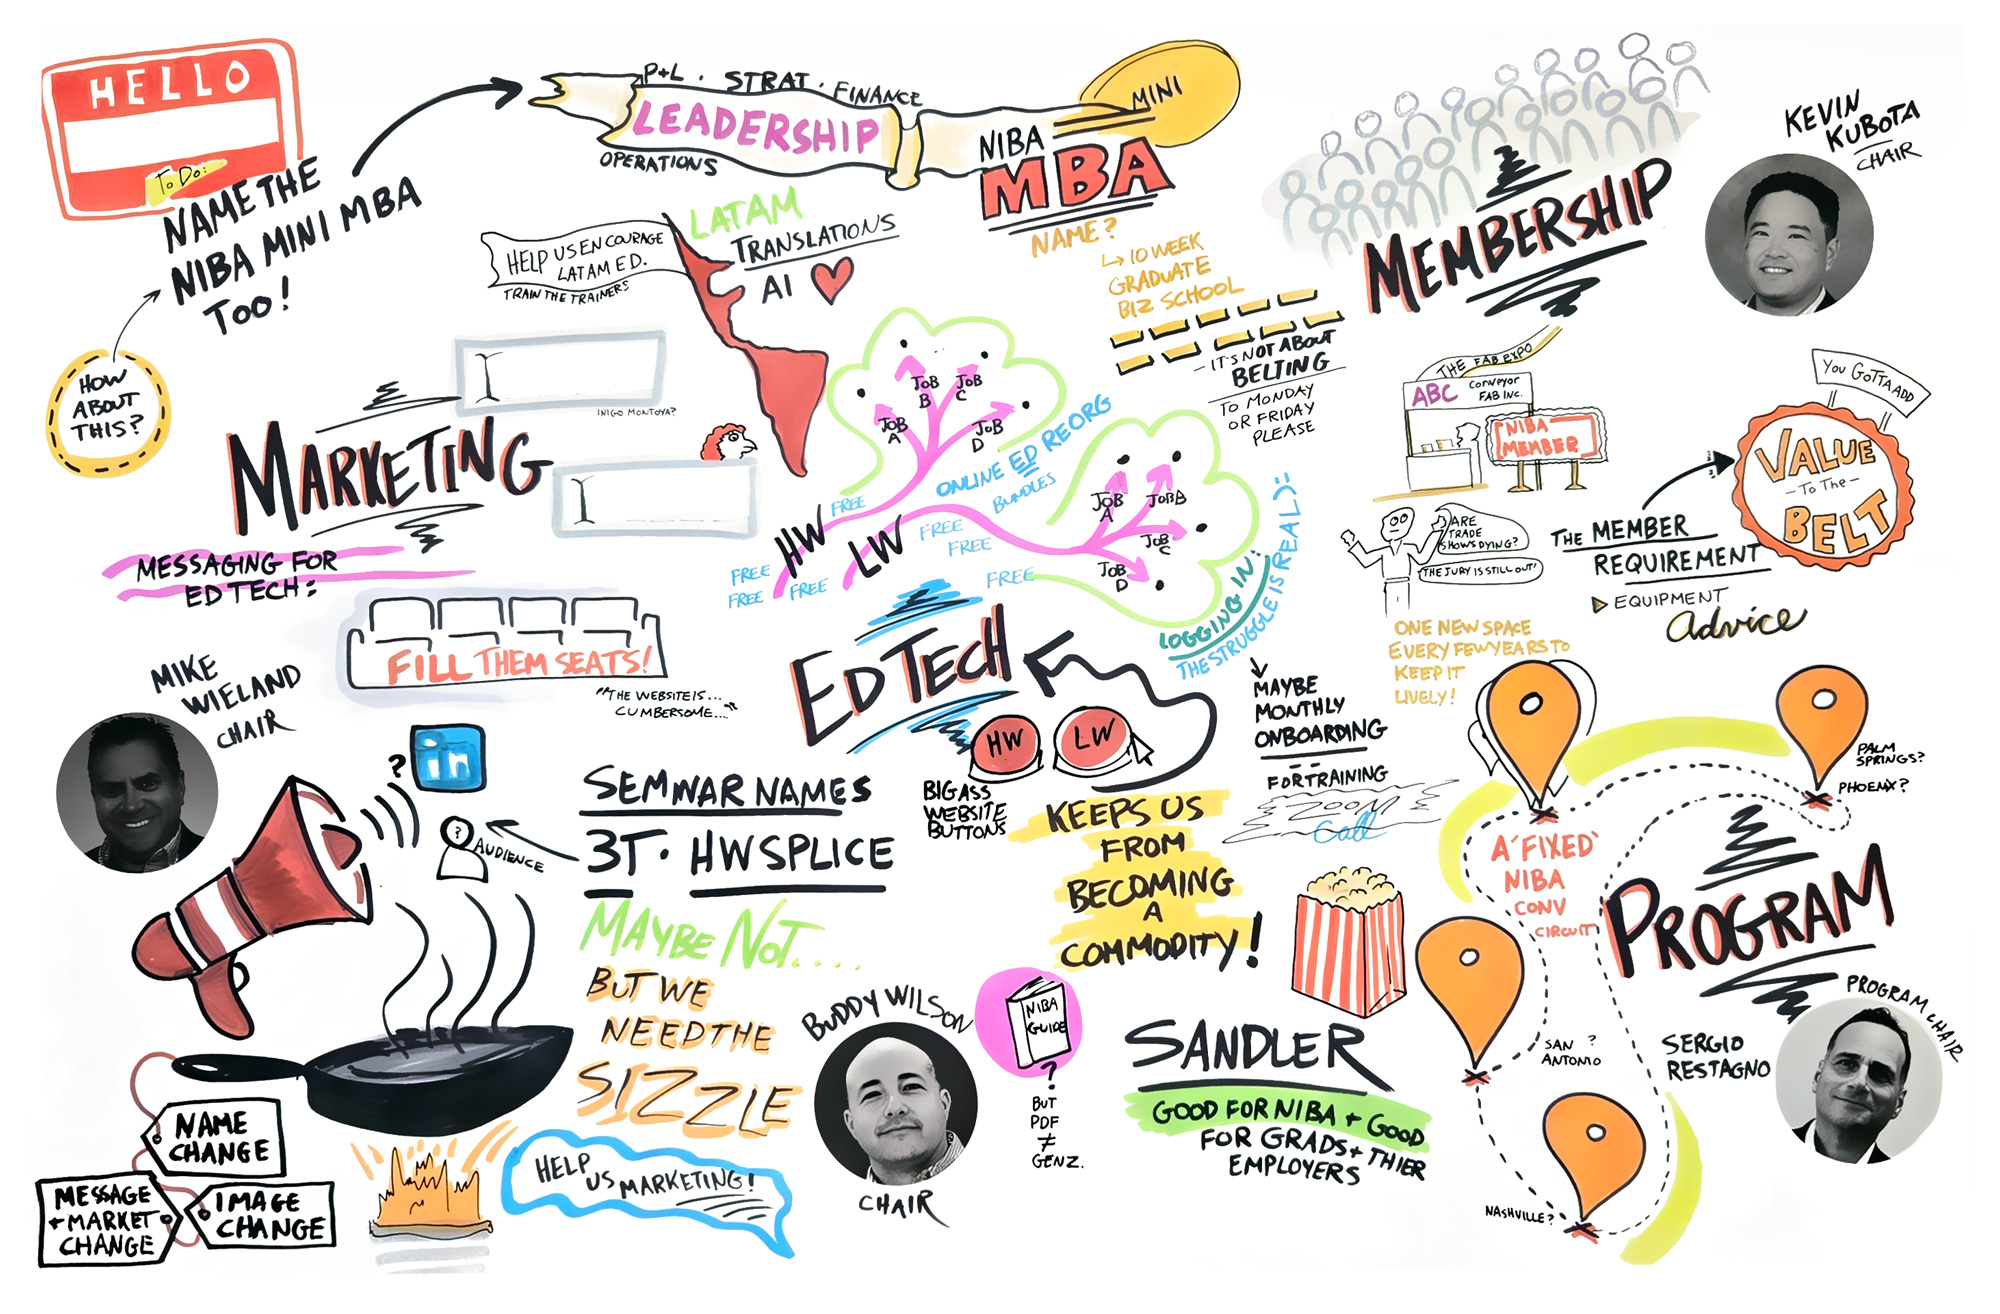 HELLO
To Do:
NAME THE
NIBA MINI MBA
TOO!
HOW
ABOUT
THIS?
P+L . STRAT . FINANCE
LEADERSHIP
OPERATIONS
MINI
NIBA
MBA
NAME?
↳ 10 WEEK
GRADUATE
BIZ SCHOOL
- IT'S NOT ABOUT
BELTING
TO MONDAY
OR FRIDAY
PLEASE
LATAM
TRANSLATIONS
AI
HELP US ENCOURAGE
LATAM ED.
TRAIN THE TRAINERS
MEMBERSHIP
KEVIN
KUBOTA
CHAIR
THE FAB EXPO
ABC Conveyor
FAB INC.
NIBA
MEMBER
ARE
TRADE
SHOWS DYING?
THE JURY IS STILL OUT!
ONE NEW SPACE
EVERY FEW YEARS TO
KEEP IT
LIVELY!
YOU GOTTA ADD
VALUE
- TO THE -
BELT
THE MEMBER
REQUIREMENT
EQUIPMENT
advice
MARKETING
INIGO MONTOYA?
MESSAGING FOR
ED TECH:
FILL THEM SEATS!
"THE WEBSITE IS...
CUMBERSOME..."
MIKE
WIELAND
CHAIR
?
in
?
AUDIENCE
SEMINAR NAMES
3T · HW SPLICE
MAYBE NOT.....
BUT WE
NEED THE
SIZZLE
NAME
CHANGE
MESSAGE
+ MARKET
CHANGE
IMAGE
CHANGE
HELP
US MARKETING!
JOB
A
JOB
B
JOB
C
JOB
D
ONLINE ED REORG
BUNDLES
HW
LW
FREE
FREE
FREE
FREE
FREE
FREE
FREE
JOB
A
JOB B
JOB
C
JOB
D
LOGGING IN:
THE STRUGGLE IS REAL):
EDTECH
HW
LW
BIG ASS
WEBSITE
BUTTONS
MAYBE
MONTHLY
ONBOARDING
FOR TRAINING
ZOOM
Call
KEEPS US
FROM
BECOMING
A
COMMODITY!
BUDDY WILSON
CHAIR
NIBA
GUIDE
?
BUT
PDF
≠
GEN Z.
SANDLER
GOOD FOR NIBA + GOOD
FOR GRADS + THIER
EMPLOYERS
A 'FIXED'
NIBA
CONV
CIRCUIT
PALM
SPRINGS?
PHOENIX?
SAN ?
ANTONIO
NASHVILLE?
PROGRAM
PROGRAM CHAIR
SERGIO
RESTAGNO